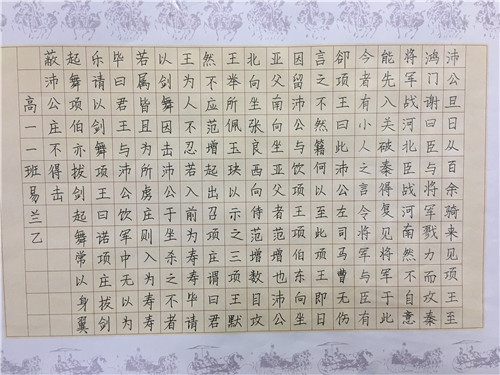 沛公旦日从百余骑来见项王至
鸿门谢曰臣与将军戮力而攻秦
将军战河北臣战河南然不自意
能先入关破秦得复见将军于此
今者有小人之言令将军与臣有
郤项王曰此沛公左司马曹无伤
言之不然籍何以至此项王即日
因留沛公与饮项王项伯东向坐
亚父南向坐亚父者范增也沛公
北向坐张良西向侍范增数目攻
王举所佩玉玦以示之三项王默
然不应范增起出召项庄谓曰君
王为人不忍若入前为寿寿毕请
以剑舞因击沛公于坐杀之不者
若属皆且为所虏庄则入为寿寿
毕曰君王与沛公饮军中无以为
乐请以剑舞项王曰诺项庄拔剑
起舞项伯亦拔剑起舞常以身翼
蔽沛公庄不得击
高一一班易兰乙